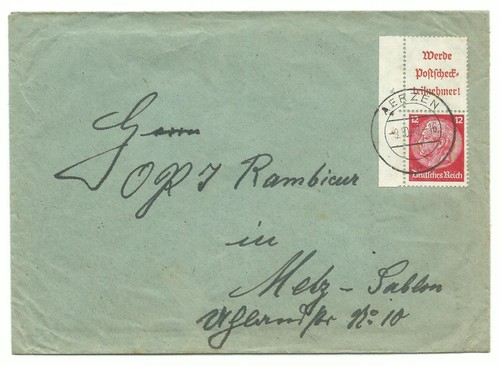 Werde
Postscheck-
teilnehmer!
AERZEN
12 12
Deutsches Reich
Herrn
OPI Rambicur
in
Metz-Sablon
Uhlandstr No 10